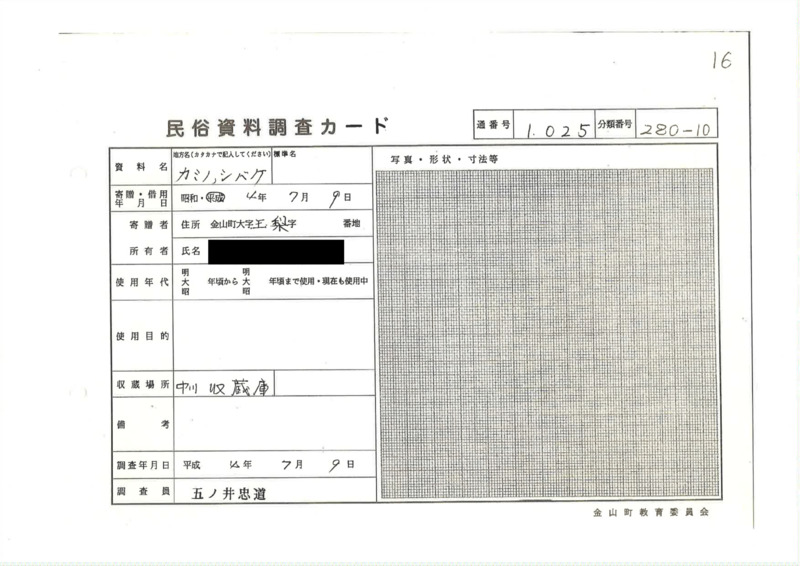 16
民俗資料調査カード
通番号 1.025 分類番号 280-10
資料名 地方名(カタカナで記入してください) 標準名
写真・形状・寸法等
寄贈・借用年月日 昭和・平成 4年 7月 9日
寄贈者 住所 金山町大字 玉梨 字 番地
所有者 氏名
使用年代 明大昭 年頃から 明大昭 年頃まで使用・現在も使用中
使用目的
収蔵場所 中川収蔵庫
備考
調査年月日 平成 4年 7月 9日
調査員 五ノ井忠道
金山町教育委員会